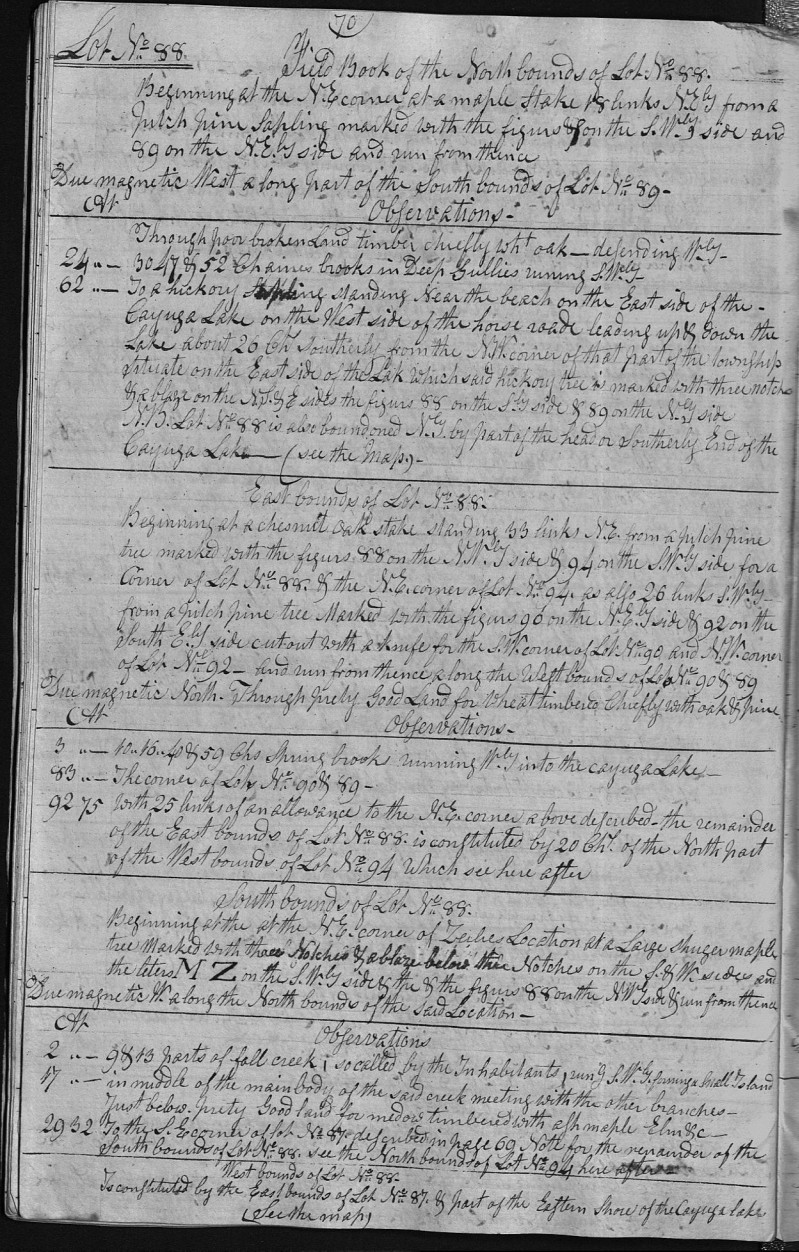 70
Lot No. 88.
Field Book of the North bounds of Lot No. 88.
Beginning at the N.E. corner at a maple Stake 18 links N.Ely from a
pitch pine Sapling marked with the figurs 88 on the S.Wly side and
89 on the N.Ely side and run from thence
Due magnetic West along part of the South bounds of Lot No. 89-
At Observations-
Through poor broken Land timber chiefly wht oak- desending Wly-
24 " - 30 47 & 52 Chaines brooks in Deep Gullies runing S.Wly-
62 " - To a hickory Sapling standing Near the beach on the East side of the-
Cayuga Lake on the West side of the horse roade leading up & down the
Lake about 26 Chs Southerly from the N.W. corner of that part of the township
situate on the East side of the Lak which said hickory tree is marked with three notch
& a blaze on the N.S. & E sides the figurs 88 on the Sly side & 89 on the Nly side
N.B. Lot No. 88 is also boundoned Nly by part of the head or Southerly End of the
Cayuga Lake- (see the Map)-
East bounds of Lot No. 88.
Beginning at a chesnutt oak stake standing 33 links N.E. from a pitch pine
tree marked with the figurs 88 on the N.Wly side & 94 on the S.Wly side for a
Corner of Lot No. 88. & the N.E. corner of Lot No. 94. as also 26 links S.Wly-
from a pitch pine tree Marked with the figurs 90 on the N.Ely side & 92 on the
South Ely side cut out with a knife for the S.W. corner of Lot No. 90 and N.W. corner
of Lot No. 92- and run from thence along the West bounds of Lots No. 90 & 89
Due magnetic North- Through prety Good Land for wheat timbered Chiefly with oak & pine
At Observations-
3 " - 10.. 16.. 40 & 59 Chs spring brooks running Wly into the cayuga Lake-
83 " - The corner of Lots No. 90 & 89-
92 75 with 25 links of an allowance to the N.E. corner above described- the remainder
of the East bounds of Lot No. 88. is constituted by 20 Chs. of the North part
of the West bounds of Lot No. 94 which see here after
South bounds of Lot No. 88.
Beginning at the at the N.E. corner of Location at a Large shuger maple
tree Marked with three Notches & a blaze below the Notches on the S. & W. sides and
the leters M Z on the S.Wly side & the & the figurs 88 on the N.Wly side & run from thence
Due magnetic W. along the North bounds of the said Location-
At
Observations
2 " - 9 & 13 parts of fall creek (so called by the Inhabitants) rung S.Wly forming a small Island
17 " - in middle of the main body of the said creek meeting with the other branches-
Just below. prety Good land for medow timbered with ash maple Elm &c-
29 32 To the S.E. corner of Lot No. 87. described in page 69 Note for the remainder of the
South bounds of Lot No. 88. see the North bounds of Lot No. 94 here after-
West bounds of Lot No. 88.
Is constituted by the East bounds of Lot No. 87. & part of the Eastern Shore of the Cayuga lake
(See the map)